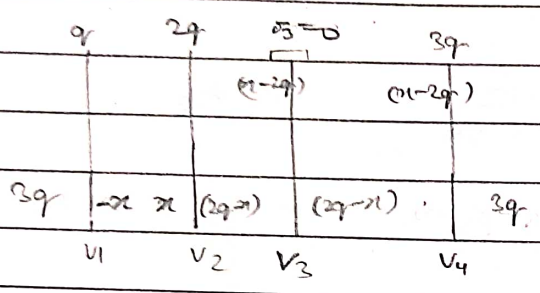 q 2q σ3=0 3q
(x-2q) (x-2q)
3q -x x (2q-x) (2q-x) 3q
V1 V2 V3 V4